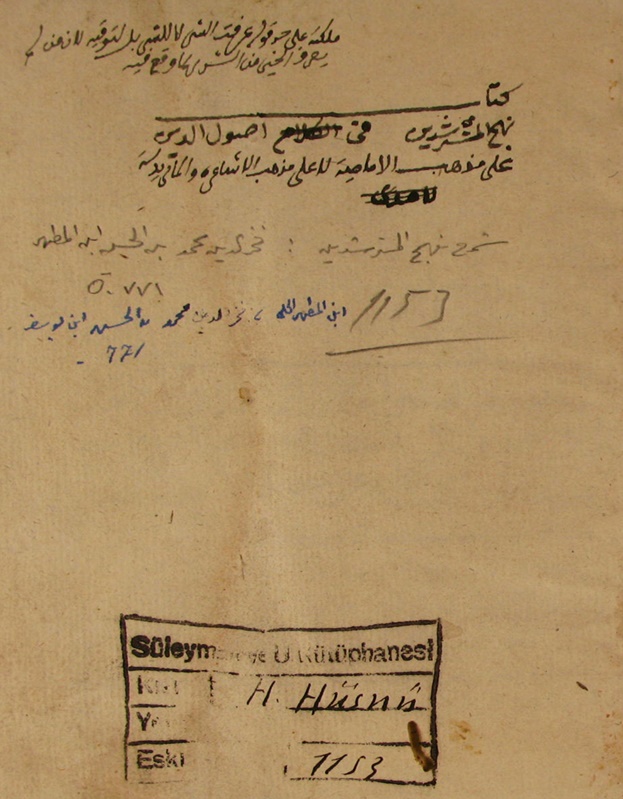 ملكته على حد قولهم عرفت الشر لا للشر بل لتوقيه لان من لم
يعرف الخير من الشر ربما وقع فيه
كتاب
نهج المسترشدين فى الكلام اصول الدين
على مذهب الامامية لا على مذهب الاشاعرة والماتريدية
شرح نهج المسترشدين : فخر الدين محمد بن الحسن ابن المطهر
٧٧١
1153 ابن المطهر الحلى، فخر الدين محمد بن الحسن ابن يوسف
771 -
Süleymaniye U Kütüphanesi
H. Hüsnü
Eski 1153